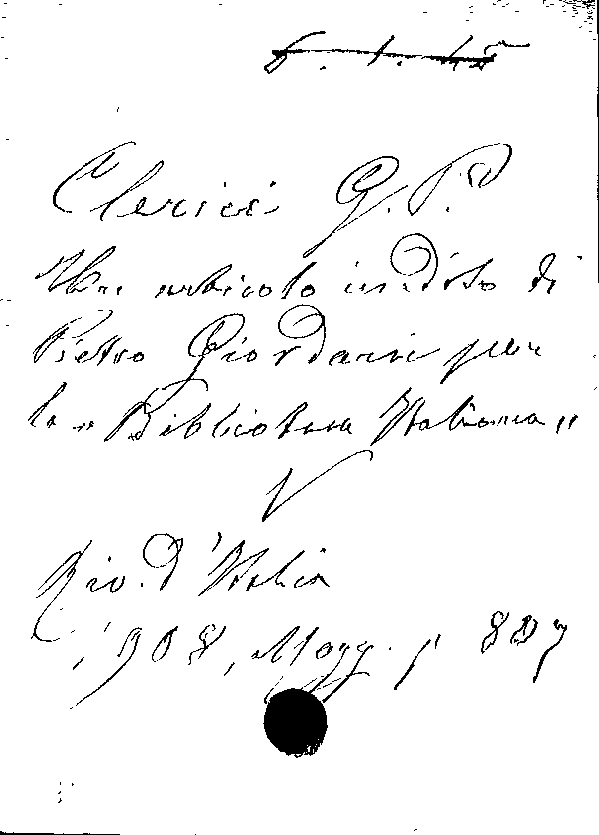 6. 1. 45
Clerici G. P.
Un articolo inedito di
Pietro Giordani per
la „Biblioteca Italiana„
V
Riv. d'Italia
1908, Magg. p 807